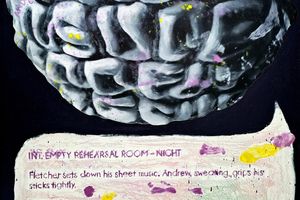 INT. EMPTY REHEARSAL ROOM - NIGHT
Fletcher sets down his sheet music. Andrew, sweating, grips his
sticks tightly.